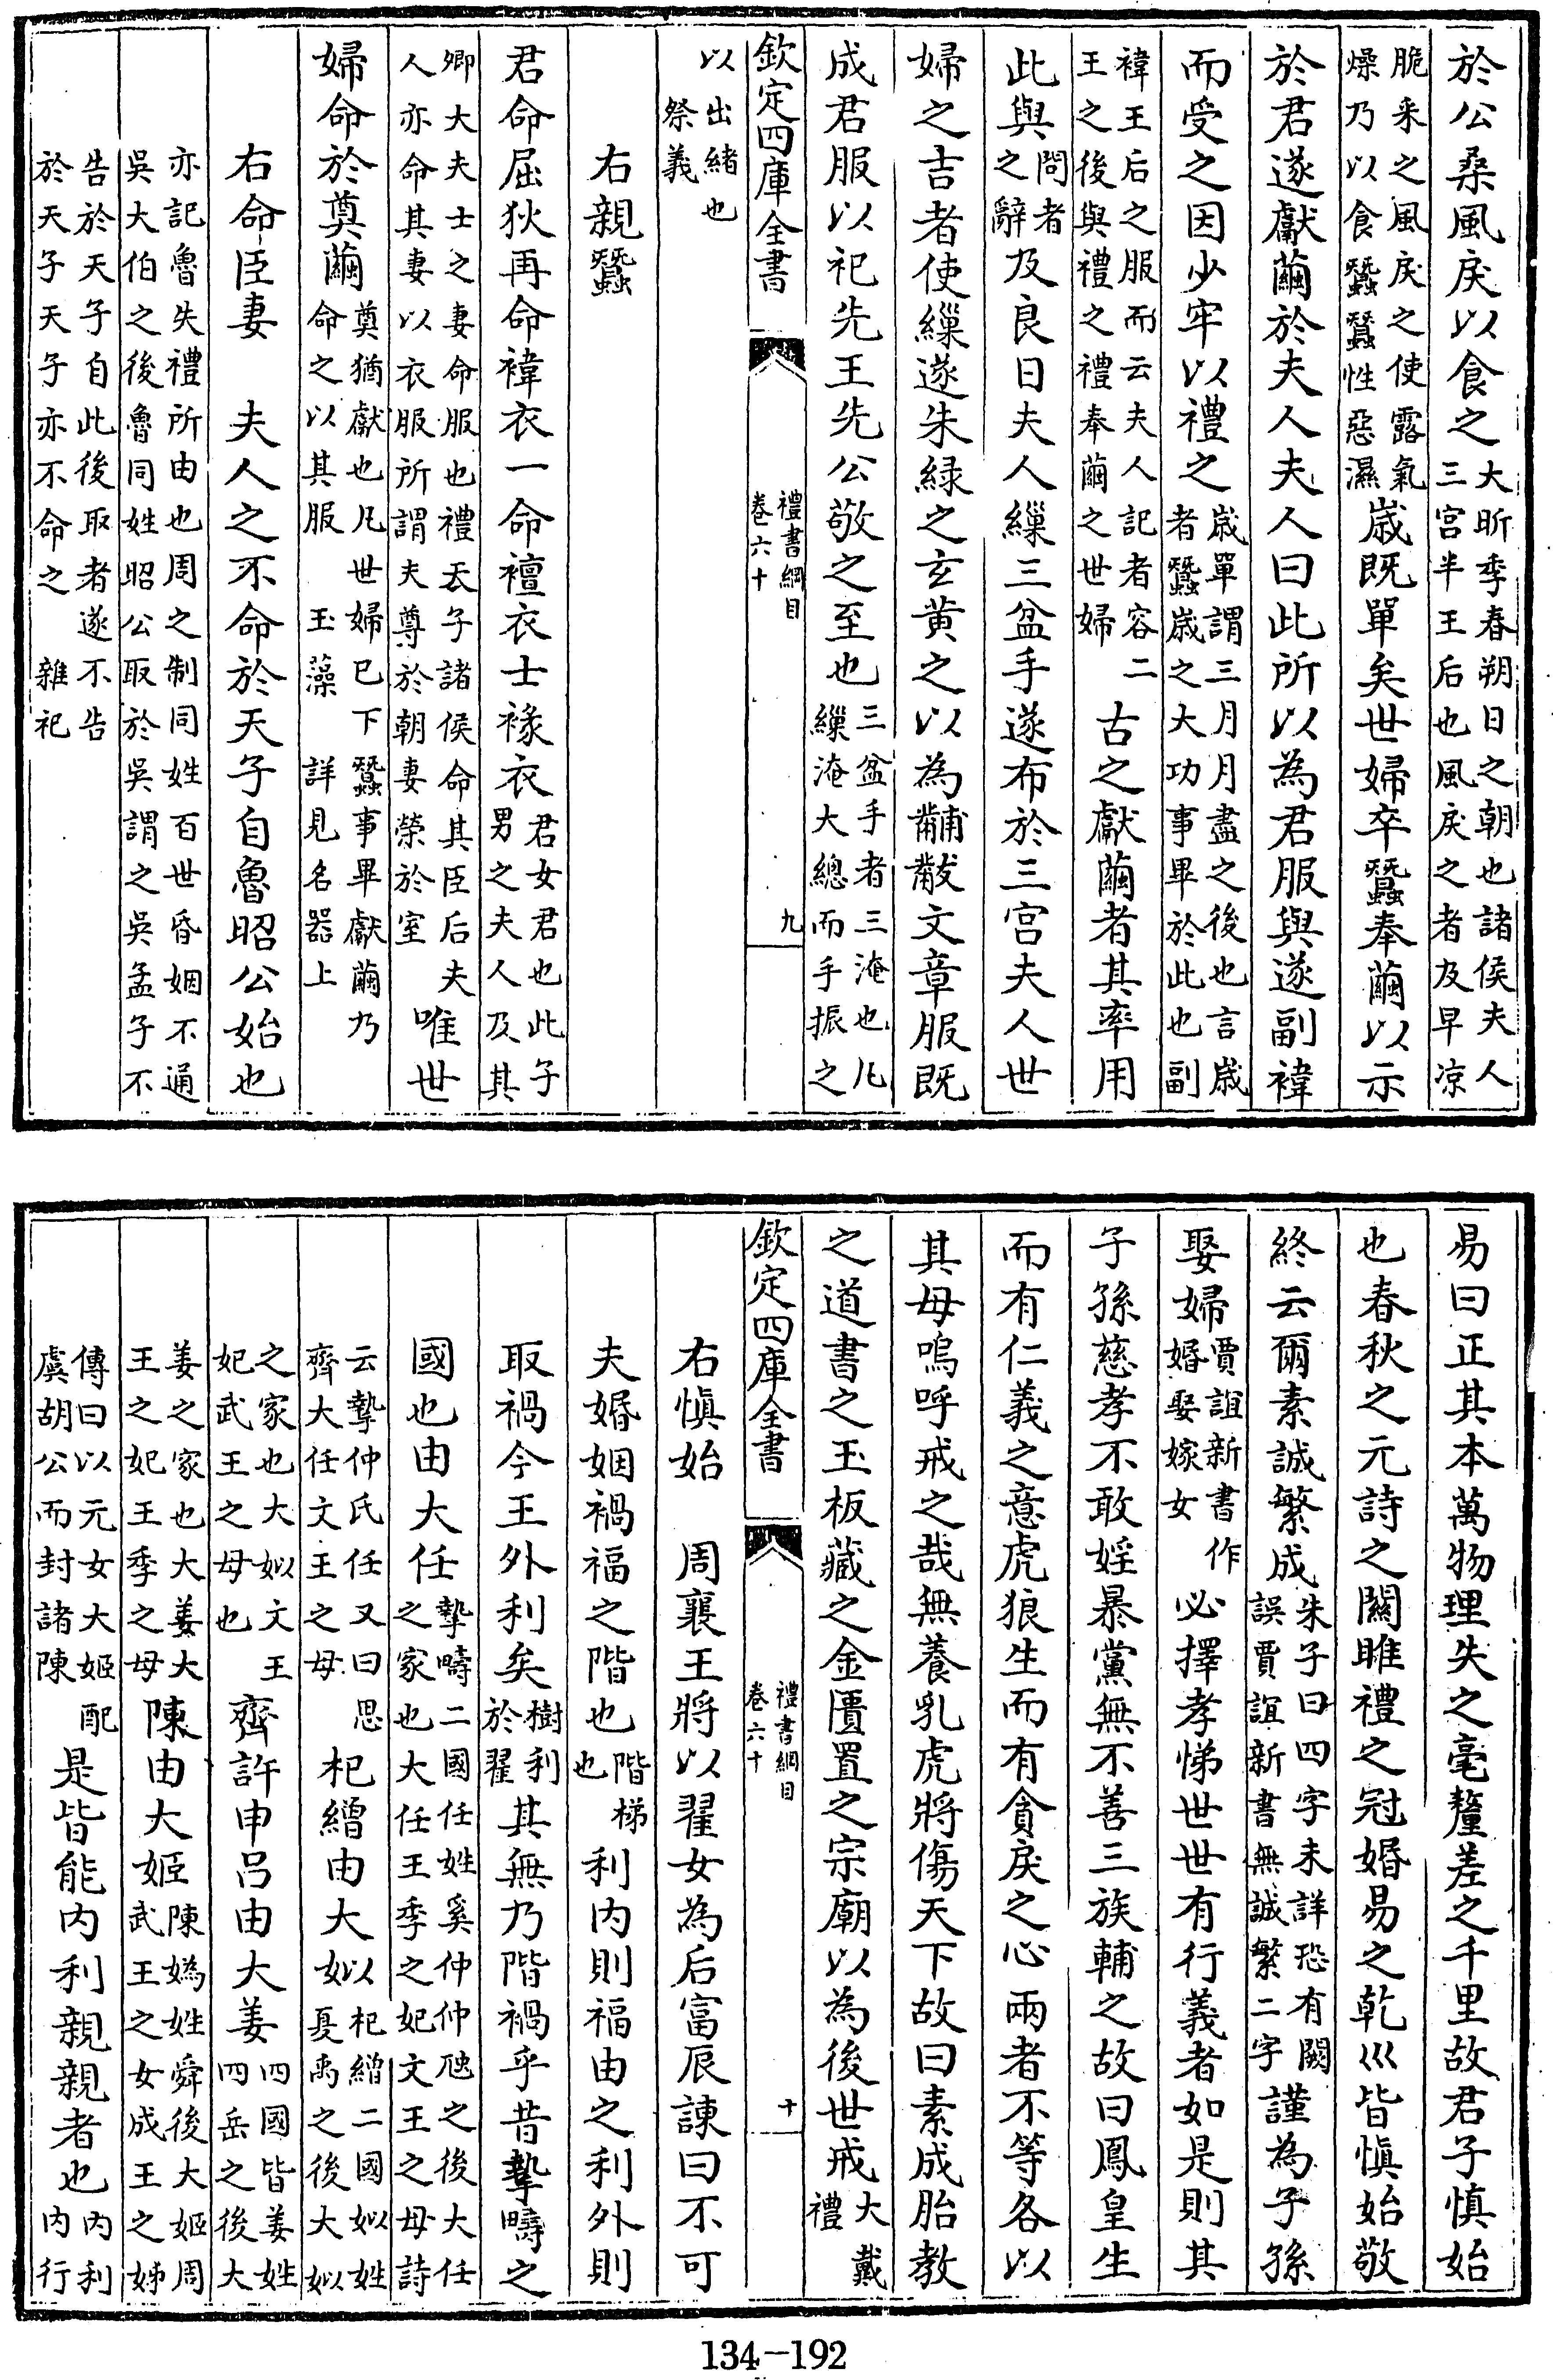 於公桑風戾以食之大昕季春朔日之朝也諸侯夫人三宮半王后也風戾之者及早涼
脆采之風戾之使露氣燥乃以食蠶蠶性惡濕歲既單矣世婦卒蠶奉繭以示
於君遂獻繭於夫人夫人曰此所以為君服與遂副褘
而受之因少牢以禮之歲單謂三月月盡之後也言歲者蠶歲之大功事畢於此也副
褘王后之服而云夫人記者容二王之後與禮之禮奉繭之世婦古之獻繭者其率用
此與問者之辭及良日夫人繅三盆手遂布於三宮夫人世
婦之吉者使繅遂朱緑之玄黃之以為黼黻文章服既
成君服以祀先王先公敬之至也三盆手者三淹也凡繅淹大總而手振之
欽定四庫全書
禮書綱目
卷六十
九
以出緒也祭義
右親蠶
君命屈狄再命褘衣一命襢衣士褖衣君女君也此子男之夫人及其
卿大夫士之妻命服也禮天子諸侯命其臣后夫人亦命其妻以衣服所謂夫尊於朝妻榮於室唯世
婦命於奠繭奠猶獻也凡世婦已下蠶事畢獻繭乃命之以其服 玉藻 詳見名器上
右命臣妻 夫人之不命於天子自魯昭公始也
亦記魯失禮所由也周之制同姓百世昏姻不通吳大伯之後魯同姓昭公取於吳謂之吳孟子不
告於天子自此後取者遂不告於天子天子亦不命之 雜祀
易曰正其本萬物理失之毫釐差之千里故君子慎始
也春秋之元詩之關雎禮之冠婚易之乾巛皆慎始敬
終云爾素誠繁成朱子曰四字未詳恐有闕誤賈誼新書無誠繁二字謹為子孫
娶婦賈誼新書作婚娶嫁女必擇孝悌世世有行義者如是則其
子孫慈孝不敢婬暴黨無不善三族輔之故曰鳳皇生
而有仁義之意虎狼生而有貪戾之心兩者不等各以
其母嗚呼戒之哉無養乳虎將傷天下故曰素成胎教
之道書之玉板藏之金匱置之宗廟以為後世戒大戴禮
欽定四庫全書
禮書綱目
卷六十
十
右慎始 周襄王將以翟女為后富辰諫曰不可
夫婚姻禍福之階也階梯也利內則福由之利外則
取禍今王外利矣樹利於翟其無乃階禍乎昔摯疇之
國也由大任摯疇二國任姓奚仲仲虺之後大任之家也大任王季之妃文王之母詩
云摯仲氏任又曰思齊大任文王之母杞繒由大姒杞繒二國姒姓夏禹之後大姒
之家也大姒文王妃武王之母也齊許申呂由大姜四國皆姜姓四岳之後大
姜之家也大姜大王之妃王季之母陳由大姬陳媯姓舜後大姬周武王之女成王之姊
傳曰以元女大姬配虞胡公而封諸陳是皆能內利親親者也內利內行
134-192